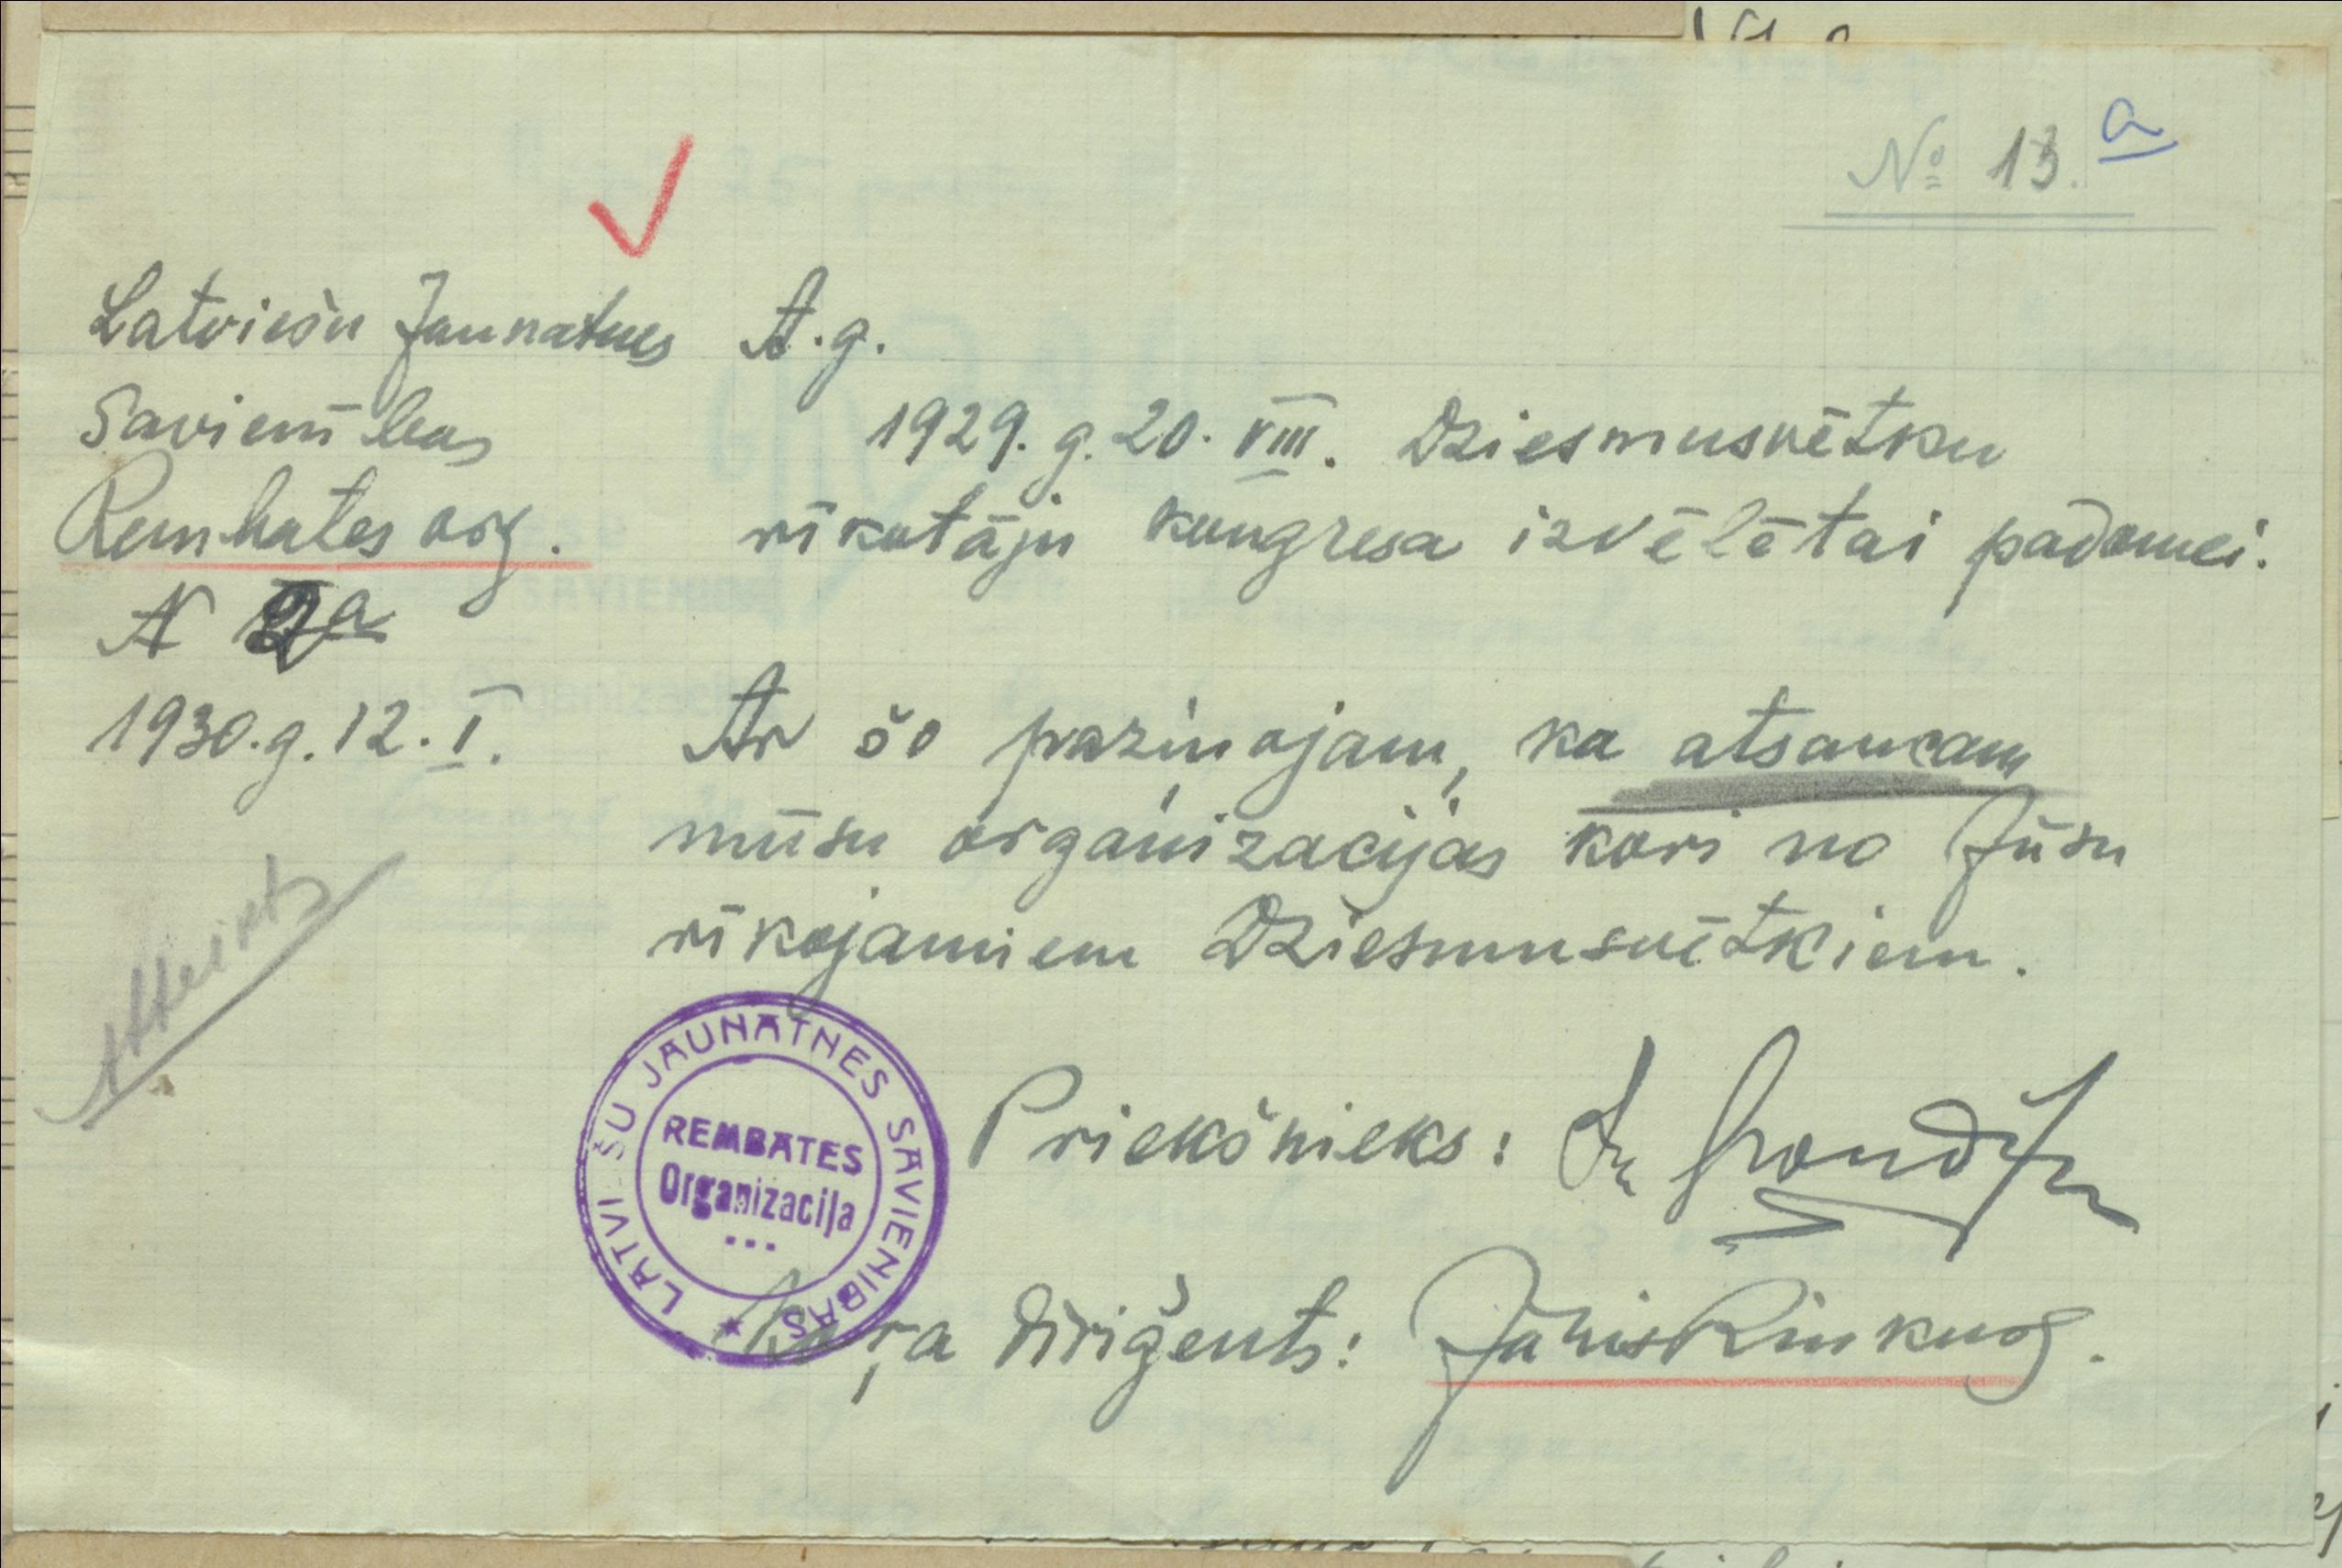 № 13. a
Latviešu Jaunatnes
Savienības
Rembates org.
N 2a
1930.g. 12. I.
Atteikts
A.g.
1929. g. 20. VIII. Dziesmusvētku
rīkotāju kongresa izvēlētai padomei.
Ar šo paziņojam, ka atsaucam
mūsu organizacijas kori no Jūsu
rīkojamiem Dziesmusvētkiem.
LATVI SU JAUNATNES SAVIENIBAS
REMBATES
Organizacija
Priekšnieks:
Koŗa diriģents: Jānis Rinkus.